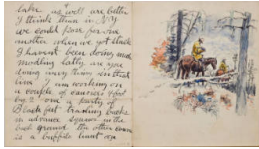 Lake as well are better
I think than in NY
we could pose for one
another when we get stuck
I havent been doing any
modling latly are you
doing any thing in that
line I am working on
a couple of canvases
by 2 one a party of
Black feet
in advance in the
back ground the other one
is a buffalo hunt